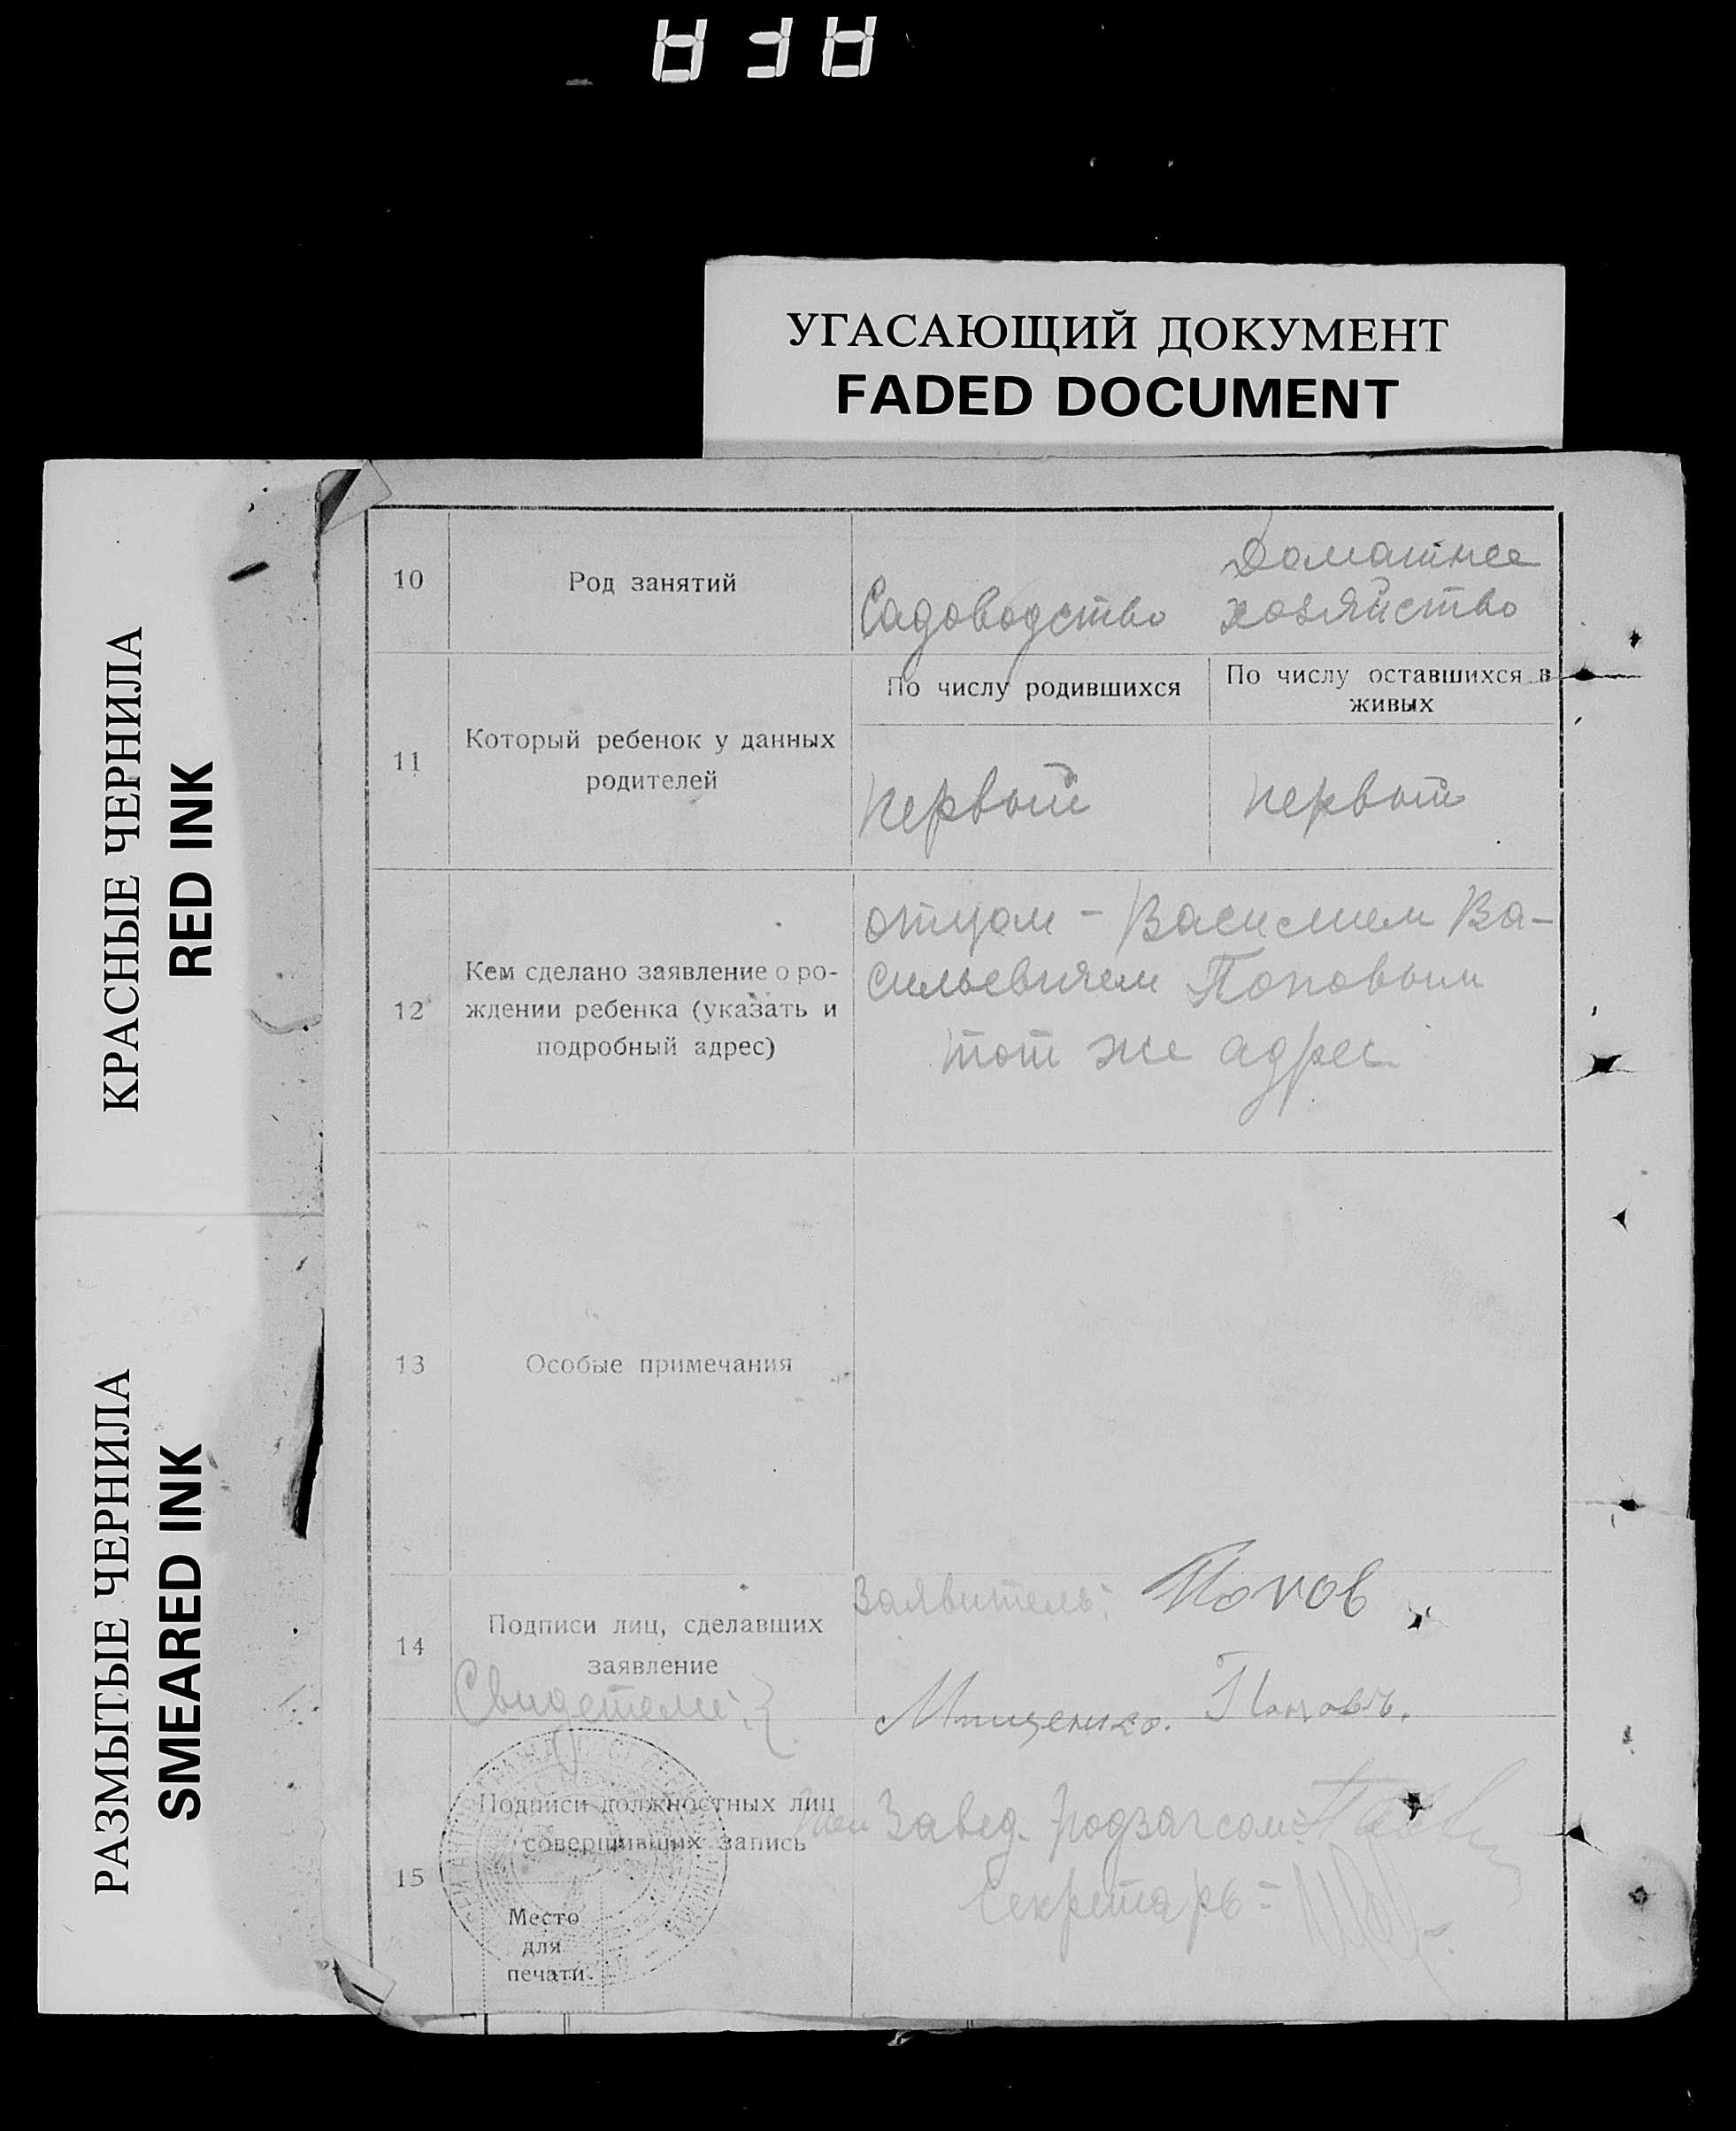 УГАСАЮЩИЙ ДОКУМЕНТ
FADED DOCUMENT
КРАСНЫЕ ЧЕРНИЛА
RED INK
РАЗМЫТЫЕ ЧЕРНИЛА
SMEARED INK
10
Род занятий
Садоводство
Домашнее
хозяйство
11
Который ребенок у данных
родителей
По числу родившихся
По числу оставшихся в
живых
первый
первый
12
Кем сделано заявление о ро-
ждении ребенка (указать и
подробный адрес)
отцом - Василием Ва-
сильевичем Поповым
тот же адрес
13
Особые примечания
14
Подписи лиц, сделавших
заявление
Свидетели:
Заявитель: Попов
Мищенко. Поповъ.
15
Подписи должностных лиц
совершивших запись
Место
для
печати
Завед. подзагсом:
Секретарь -